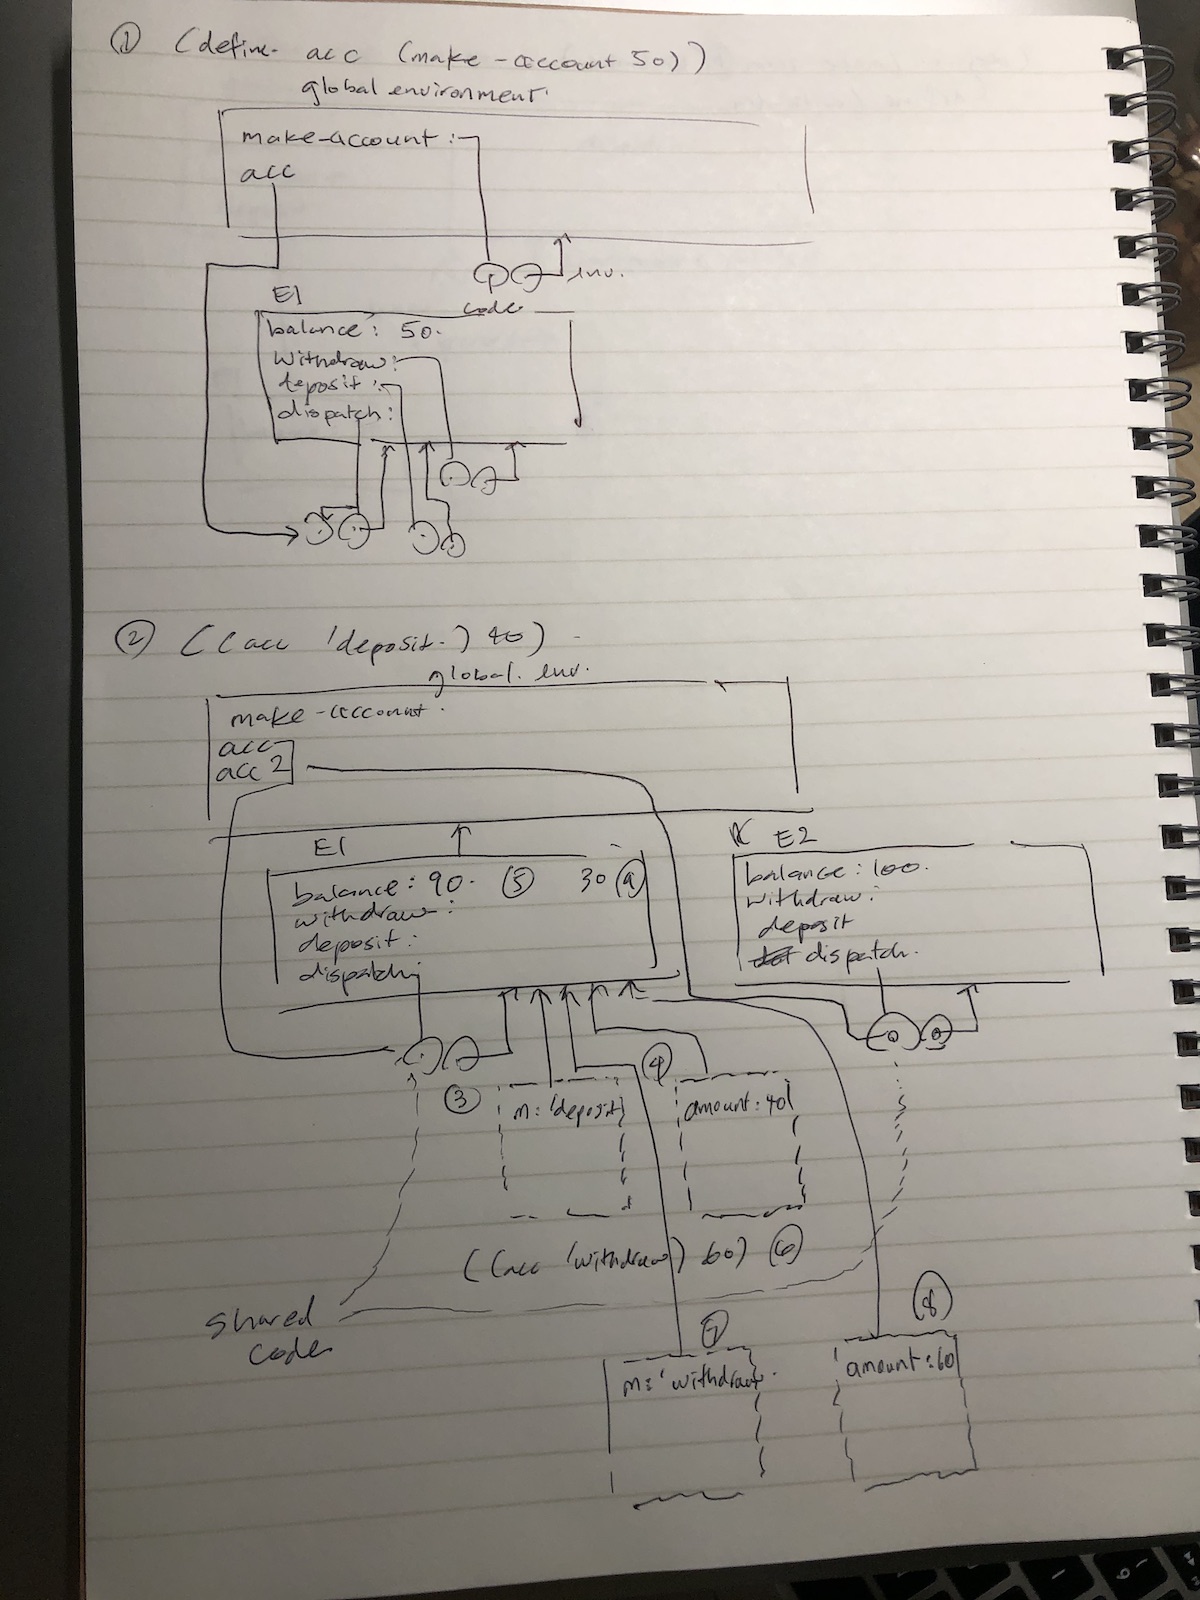 ① (define acc (make-account 50))
global environment
make-account :
acc
env.
code
E1
balance : 50.
withdraw :
deposit :
dispatch :
② ((acc 'deposit) 40)
global env.
make-account
acc
acc 2
E1
balance : 90. ⑤ 30 ⑨
withdraw :
deposit :
dispatch
E2
balance : 100.
withdraw :
deposit
dispatch.
③ m : 'deposit
④ amount : 40
((acc 'withdraw) 60) ⑥
shared
code
⑦
m : 'withdraw
⑧
amount : 60